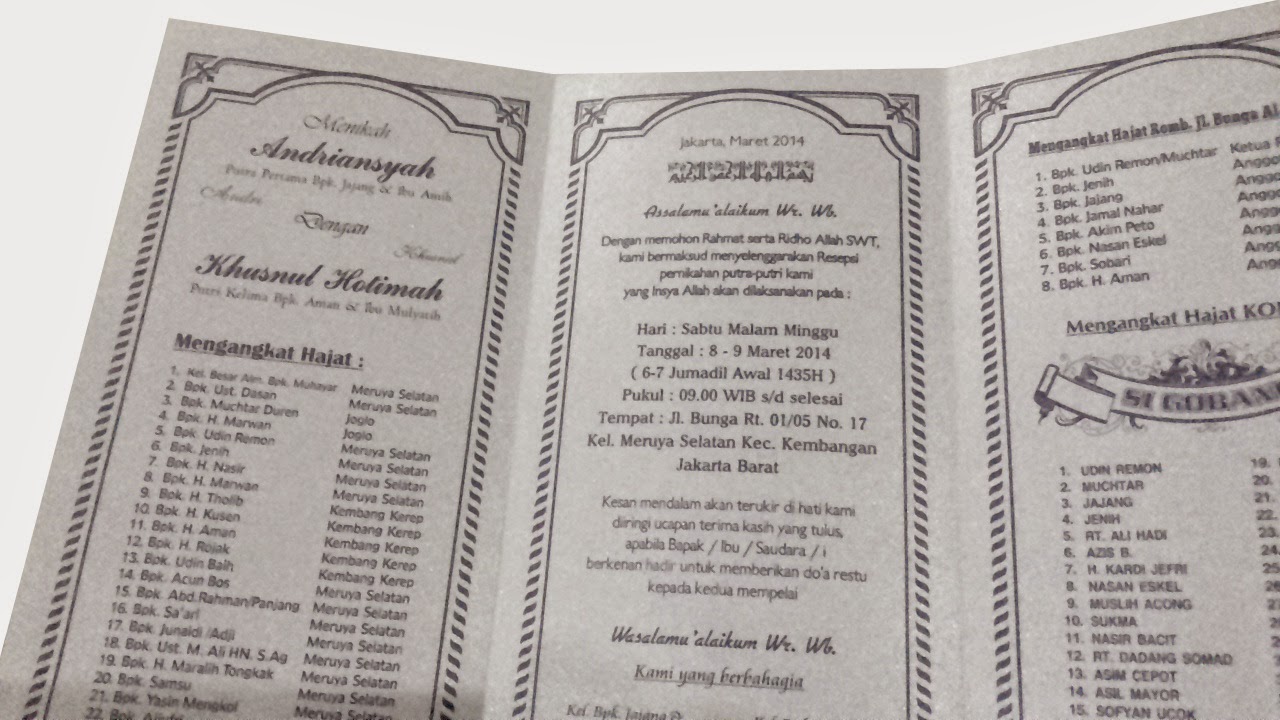 Menikah
Andriansyah
Putra Pertama Bpk. Jajang & Ibu Amih
Andri
Dengan
Khusnul
Khusnul Hotimah
Putri Kelima Bpk. Aman & Ibu Mulyatih
Mengangkat Hajat :
1. Kel. Besar Alm. Bpk. Muhayar Meruya Selatan
2. Bpk. Ust. Dasan Meruya Selatan
3. Bpk. Muchtar Duren Joglo
4. Bpk. H. Marwan Joglo
5. Bpk. Udin Remon Meruya Selatan
6. Bpk. Jenih Meruya Selatan
7. Bpk. H. Nasir Meruya Selatan
8. Bpk. H. Marwan Meruya Selatan
9. Bpk. H. Tholib Kembang Kerep
10. Bpk. H. Kusen Kembang Kerep
11. Bpk. H. Aman Kembang Kerep
12. Bpk. H. Rojak Kembang Kerep
13. Bpk. Udin Baih Kembang Kerep
14. Bpk. Acun Bos Meruya Selatan
15. Bpk. Abd.Rahman/Panjang Meruya Selatan
16. Bpk. Sa'ari Meruya Selatan
17. Bpk. Junaidi /Adji Meruya Selatan
18. Bpk. Ust. M. Ali HN. S.Ag Meruya Selatan
19. Bpk. H. Maralih Tongkak Meruya Selatan
20. Bpk. Samsu Meruya Selatan
21. Bpk. Yasin Mengkol Meruya Selatan
22. Bpk.
Jakarta, Maret 2014
Assalamu'alaikum Wr. Wb.
Dengan memohon Rahmat serta Ridho Allah SWT,
kami bermaksud menyelenggarakan Resepsi
pernikahan putra-putri kami
yang Insya Allah akan dilaksanakan pada :
Hari : Sabtu Malam Minggu
Tanggal : 8 - 9 Maret 2014
( 6-7 Jumadil Awal 1435H )
Pukul : 09.00 WIB s/d selesai
Tempat : Jl. Bunga Rt. 01/05 No. 17
Kel. Meruya Selatan Kec. Kembangan
Jakarta Barat
Kesan mendalam akan terukir di hati kami
diiringi ucapan terima kasih yang tulus,
apabila Bapak / Ibu / Saudara / i
berkenan hadir untuk memberikan do'a restu
kepada kedua mempelai
Wasalamu'alaikum Wr. Wb.
Kami yang berbahagia
Kel. Bpk. Jajang &
Mengangkat Hajat Romb. Jl. Bunga
1. Bpk. Udin Remon/Muchtar Ketua
2. Bpk. Jenih Anggo
3. Bpk. Jajang Anggo
4. Bpk. Jamal Nahar Angg
5. Bpk. Akim Peto Angg
6. Bpk. Nasan Eskel Angg
7. Bpk. Sobari Angg
8. Bpk. H. Aman Ang
Mengangkat Hajat
SI GOBAN
1. UDIN REMON 19.
2. MUCHTAR 20.
3. JAJANG 21.
4. JENIH 22.
5. RT. ALI HADI 23.
6. AZIS B. 24.
7. H. KARDI JEFRI 25
8. NASAN ESKEL
9. MUSLIH ACONG
10. SUKMA
11. NASIR BACIT
12. RT. DADANG SOMAD
13. ASIM CEPOT
14. ASIL MAYOR
15. SOFYAN UCOK